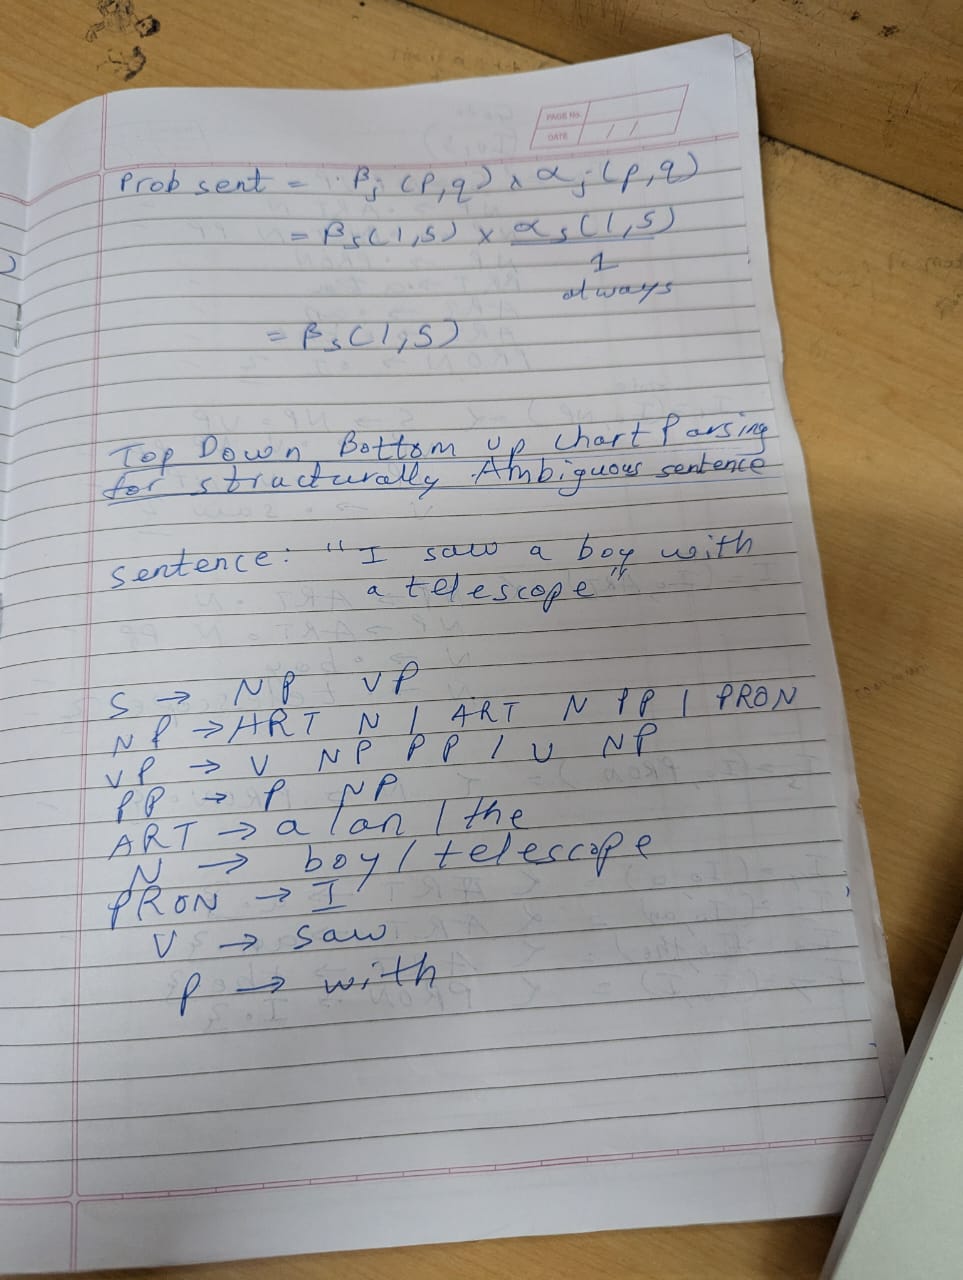 PAGE No.
DATE / /
Prob sent = βj (p,q) x αj (p,q)
= βs(1,5) x αs(1,5)
1
always
= βs(1,5)
Top Down Bottom up chart Parsing
for structurally Ambiguous sentence
sentence: "I saw a boy with
a telescope"
S → NP VP
NP → ART N | ART N PP | PRON
VP → V NP PP | V NP
PP → P NP
ART → a | an | the
N → boy | telescope
PRON → I
V → saw
P → with